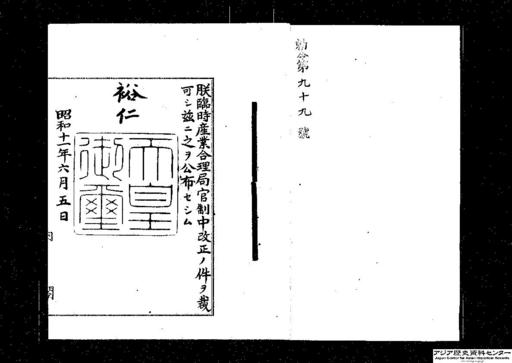 勅令第九十九號
朕臨時産業合理局官制中改正ノ件ヲ裁
可シ茲ニ之ヲ公布セシム
裕仁
天皇御璽
昭和十一年六月五日
内閣
アジア歴史資料センター
Japan Center for Asian Historical Records